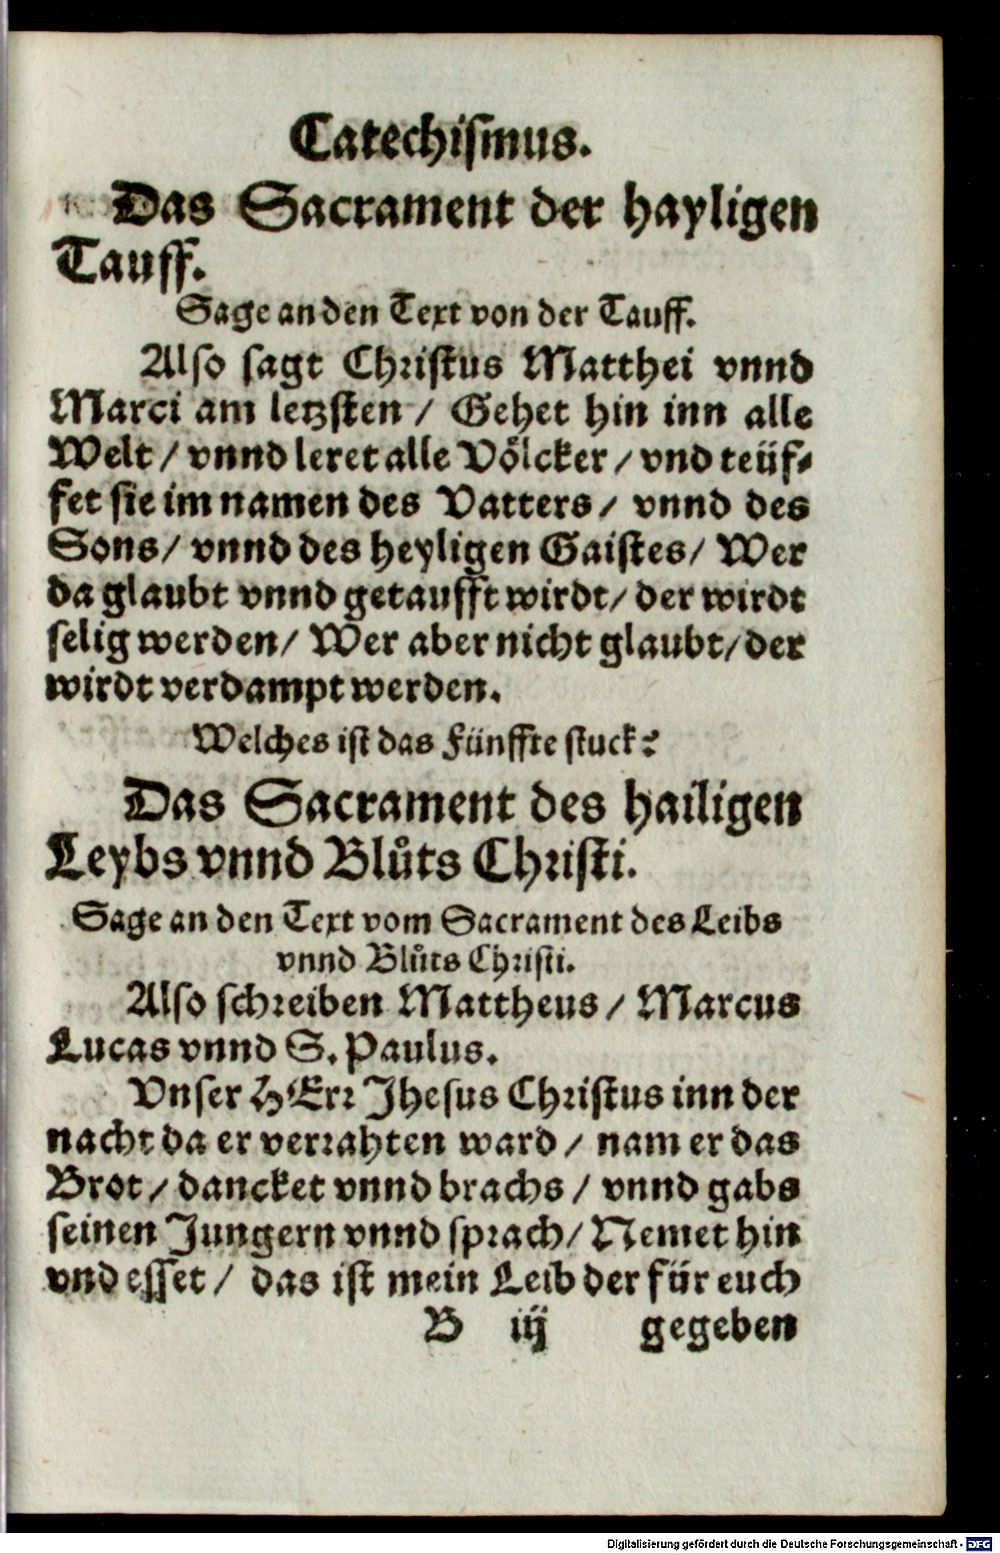 Catechiſmus.
Das Sacrament der hayligen
Tauff.
Sage an den Text von der Tauff.
Alſo ſagt Chriſtus Matthei vnnd
Marci am letzſten / Gehet hin inn alle
Welt / vnnd leret alle Voͤlcker / vnd teüf⸗
fet ſie im namen des Vatters / vnnd des
Sons / vnnd des heyligen Gaiſtes / Wer
da glaubt vnnd getaufft wirdt / der wirdt
ſelig werden / Wer aber nicht glaubt / der
wirdt verdampt werden.
Welches iſt das Fünffte ſtuck?
Das Sacrament des hailigen
Leybs vnnd Blůts Chriſti.
Sage an den Text vom Sacrament des Leibs
vnnd Blůts Chriſti.
Alſo ſchꝛeiben Mattheus / Marcus
Lucas vnnd S. Paulus.
Vnſer HErꝛ Jheſus Chꝛiſtus inn der
nacht da er verꝛahten ward / nam er das
Brot / dancket vnnd brachs / vnnd gabs
ſeinen Jungern vnnd ſpꝛach / Nemet hin
vnd eſſet / das iſt mein Leib der für euch
B iij gegeben
Digitalisierung gefördert durch die Deutsche Forschungsgemeinschaft - DFG